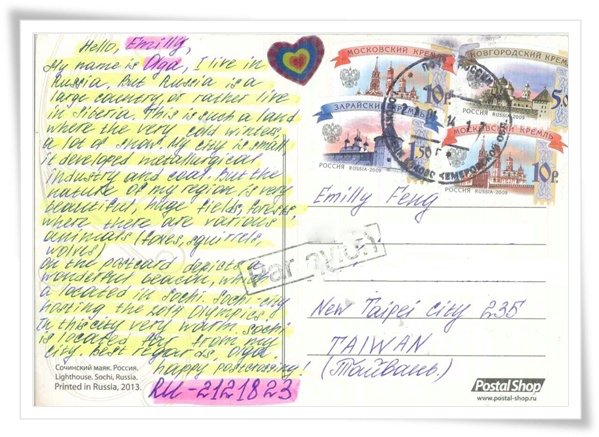 Hello, Emilly,
My name is Olga, I live in
Russia. But Russia is a
large country or rather live
in Siberia. This is such a land
where the very cold winters,
a lot of snow. My city is small
it developed metallurgical
industry and coal. But the
nature of my region is very
beautiful, huge fields, forests,
where there are various
animals (foxes, squirrels,
wolves)
On the postcard depicts a
wonderful beacon, which
a located in Sochi. Sochi city
hosting the 2014 Olympics.
In this city very warm. Sochi
is located far from my
city. Best regards, Olga.
happy postcrossing!
RU-2121823
Сочинский маяк. Россия.
Lighthouse. Sochi, Russia.
Printed in Russia, 2013.
МОСКОВСКИЙ КРЕМЛЬ
10р.
НОВГОРОДСКИЙ КРЕМЛЬ
5,00
РОССИЯ RUSSIA·2009
ЗАРАЙСКИЙ КРЕМЛЬ
1,50
РОССИЯ RUSSIA·2009
МОСКОВСКИЙ КРЕМЛЬ
10р.
РОССИЯ RUSSIA·2009
Emilly Feng
Par avion
New Taipei city 235
TAIWAN
(Тайвань.)
PostalShop
www.postal-shop.ru